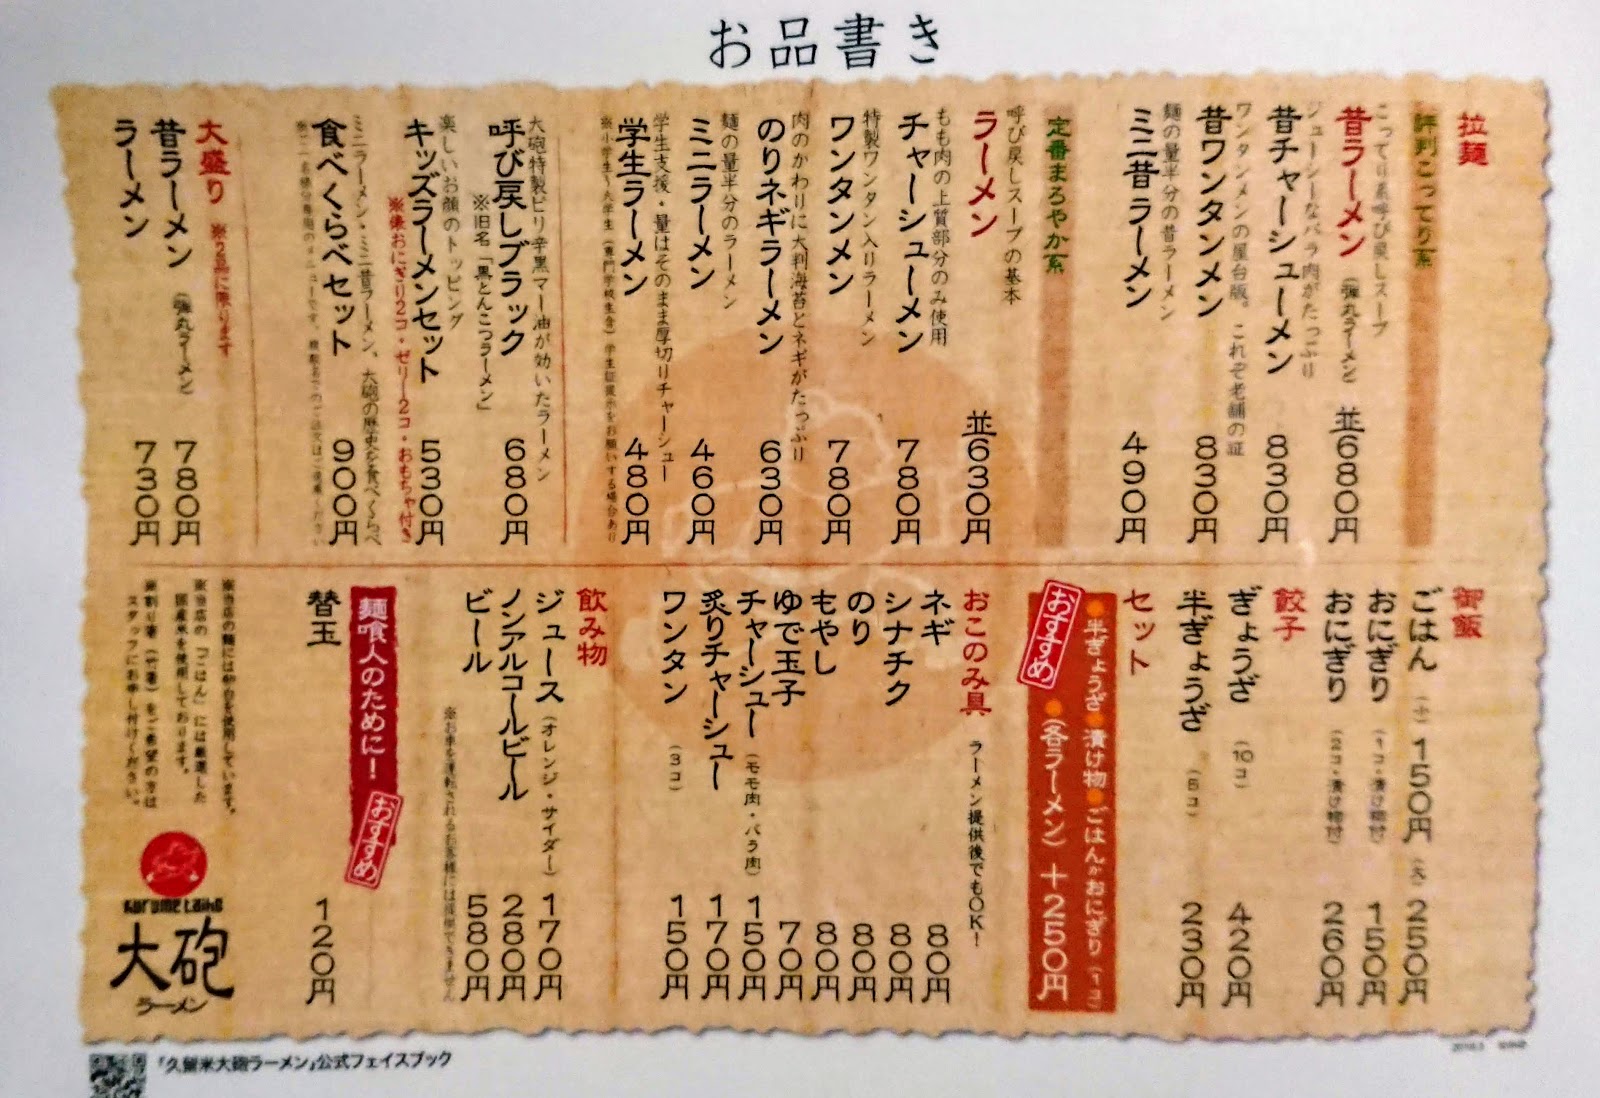 お品書き
拉麺
評判こってり系
こってり系呼び戻しスープ
昔ラーメン（弾丸ラーメン） 並680円
ジューシーなバラ肉がたっぷり
昔チャーシューメン 830円
ワンタンメンの屋台版。これぞ老舗の証
昔ワンタンメン 830円
麺の量半分の昔ラーメン
ミニ昔ラーメン 490円
定番まろやか系
呼び戻しスープの基本
ラーメン 並630円
もも肉の上質部分のみ使用
チャーシューメン 780円
特製ワンタン入りラーメン
ワンタンメン 780円
肉のかわりに大判海苔とネギがたっぷり
のりネギラーメン 630円
麺の量半分のラーメン
ミニラーメン 460円
学生支援・量はそのまま厚切りチャーシュー
学生ラーメン 480円
※小学生〜大学生（専門学校生含）学生証提示をお願いする場合あり
大砲特製ピリ辛黒マー油が効いたラーメン
呼び戻しブラック 680円
※旧名「黒とんこつラーメン」
楽しいお顔のトッピング
キッズラーメンセット 530円
※俵おにぎり2コ・ゼリー2コ・おもちゃ付き
ミニラーメン・ミニ昔ラーメン、大砲の歴史を食べくらべ
食べくらべセット 900円
大盛り ※2品に限ります
昔ラーメン（弾丸ラーメン） 780円
ラーメン 730円
御飯
ごはん （小）150円 （大）250円
おにぎり（1コ・漬け物付） 150円
おにぎり（2コ・漬け物付） 260円
餃子
ぎょうざ（10コ） 420円
半ぎょうざ（5コ） 230円
セット
●半ぎょうざ●漬け物●ごはんかおにぎり（1コ）
●（各ラーメン）＋250円
おすすめ
おこのみ具 ラーメン提供後でもOK！
ネギ 80円
シナチク 80円
のり 80円
もやし 80円
ゆで玉子 70円
チャーシュー（モモ肉・バラ肉） 150円
炙りチャーシュー 170円
ワンタン（3コ） 150円
飲み物
ジュース（オレンジ・サイダー） 170円
ノンアルコールビール 280円
ビール 580円
※お車を運転されるお客様には提供できません
麺喰人のために！
おすすめ
替玉 120円
※当店の「ごはん」には厳選した
国産米を使用しております。
※割り箸（竹箸）をご希望の方は
スタッフにお申し付けください。
Kurume Taiho
大砲
ラーメン
「久留米大砲ラーメン」公式フェイスブック